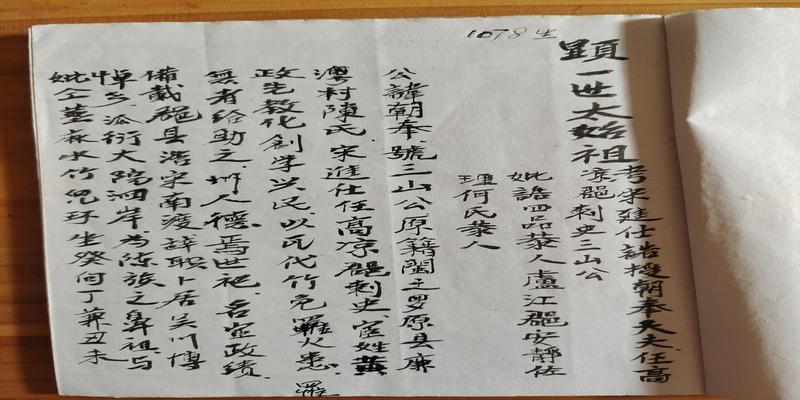 1078生
顕一世太始祖
考宋進仕誥授朝奉大夫任高
凉郡刺史三山公
妣誥四品恭人盧江郡安靜佐
理何氏恭人
公諱朝奉號三山公原籍閩之罗原县廉
澳村陳氏宋進仕任高凉郡刺史室姓黄
政先教化創学兴民以瓦代竹完羅火患羅
無者给助之州人德焉世祀名宦政绩
備載郡县浩宋南渡辞职卜居吴川博
悼乡派衍大院泗岸为陈族之鼻祖与
妣仝葬麻水竹兒环坐癸向丁兼丑未